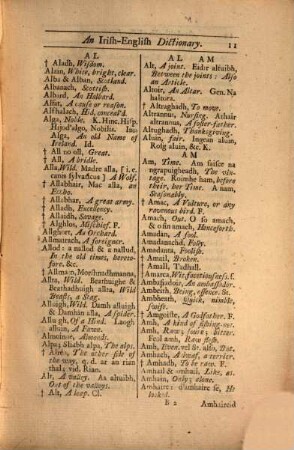 An Irish-English Dictionary. 11
A L
† Aladh, Wisdom.
Alain, White, bright, clear.
Alba & Alban, Scotland.
Albanach, Scotish.
Albard, an Halbard.
Alfat, A cause or reason.
Alfhalach, Hid, conceal'd.
Alga, Noble. K. Hinc. Hisp.
Hijod'algo, Nobilis. Ini-
Alga, An old Name of
Ireland. Id.
† All no oll, Great.
† All, A bridle.
Alla, Wild. Madra alla
canis sylvaticus; A Wolf.
† Allabhair, Mac alla, an
Eccho.
† Allabhar, A great army.
† Alladh, Excellency.
† Allaidh, Savage.
† Alghlos, Mischief. F.
† Allghort, An Orchard.
† Allmuirach, A foreigner.
Allod: a nallod & a nallud,
In the old times, hereto-
fore, &c.
† Allmain,
Alta, Wild. Beathuighe &
Beathadhuigh allta, Wild
Beasts, a Stag.
Alluigh, Wild. Damh alluigh
& Damhán alla, A spider.
† Allugh, Of a Hind. Laogh
alluin, A Fawn.
Almoinet, Almonds.
Alps; Sliabh alps, The alps.
† Alrus, The other side of
the way, q. d. ar an rian
thal; vid. Rian.
Alt, A valley. As altuibh,
Out of the valleys.
† Alt, A leap. Cl.
A L A M
Alt, A joint. Eidir altuibh,
Between the joints: Also
an Article.
Altoir, An Altar. Gen. Na
haltora.
† Altughadh, To move.
† Altrannus, Nursing. Athair
altrannus, A foster-father.
Altughadh, Thanksgiving.
Aluin, fair. Ingean aluin,
Roisg aluin, &c. K.
A M
Am, Time. Am fuisce na
ngrapuigheadh, The vin-
tage. Roimhe ham, before
their, her Time. A nam,
Seasonably.
† Amac, A Vulture, or any
ravenous bird. F.
Amach, Out. O so amach,
& o sinn amach, Henceforth.
† Amadan, A fool.
Amadanacha, Folly.
† Amadanta, Foolish.
† Amail, Broken.
† Amall, Tadhall.
† Amaras, Wit, facetiousness, f.
Ambasadoir, An ambassador.
† Ambeth, Being, essence. Sc.
Ambheath, Quick, nimble,
swift.
† Amgoiste, A Godfather. F.
† Amh, A kind of fishing-net.
† Amh, Raw, sour; bitter.
Feol amh, Raw flesh.
† Amh, Ever. vel sic. also, But.
† Ambach, A dwarf, a carrier.
† Amhadh, To be raw. F.
Amhail & amhuil, Like, as.
Amhain, Only; alone.
† Amhaire: d'amhaire se, He
looked.
B 2 Amhaircid